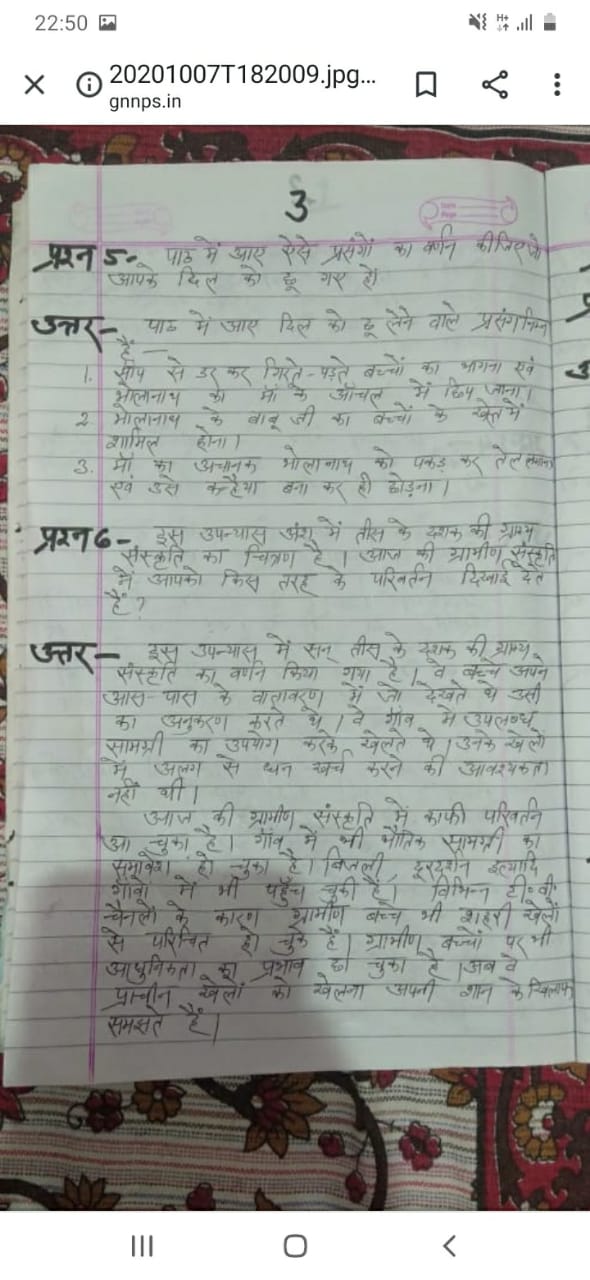 22:50
H+
20201007T182009.jpg...
gnnps.in
3
प्रश्न 5- पाठ में आए ऐसे प्रसंगों का वर्णन कीजिए जो
आपके दिल को छू गए हो।
उत्तर- पाठ में आए दिल को छू लेने वाले प्रसंग निम्न
हैं —
1. साँप से डर कर गिरते-पड़ते बच्चों का भागना एवं
भोलानाथ का माँ के आँचल में छिप जाना।
2. भोलानाथ के बाबू जी का बच्चों के खेल में
शामिल होना।
3. माँ का अचानक भोलानाथ को पकड़ कर तेल लगाना
एवं उसे कन्हैया बना कर ही छोड़ना।
प्रश्न 6- इस उपन्यास अंश में तीस के दशक की ग्राम्य
संस्कृति का चित्रण है। आज की ग्रामीण संस्कृति
में आपको किस तरह के परिवर्तन दिखाई देते
हैं?
उत्तर- इस उपन्यास में सन् तीस के दशक की ग्राम्य
संस्कृति का वर्णन किया गया है। वे बच्चे अपने
आस-पास के वातावरण में जो देखते थे उसी
का अनुकरण करते थे। वे गाँव में उपलब्ध
सामग्री का उपयोग करके खेलते थे। उनके खेलों
में अलग से धन खर्च करने की आवश्यकता
नहीं थी।
आज की ग्रामीण संस्कृति में काफी परिवर्तन
आ चुका है। गाँव में भी भौतिक सामग्री का
समावेश हो चुका है। बिजली, दूरदर्शन इत्यादि
गाँवो में भी पहुँच चुकी हैं। विभिन्न टी०वी०
चैनलो के कारण ग्रामीण बच्चे भी शहरी खेलों
से परिचित हो चुके हैं। ग्रामीण बच्चों पर भी
आधुनिकता का प्रभाव छा चुका है। अब वे
प्राचीन खेलों को खेलना अपनी शान के खिलाफ
समझते हैं।